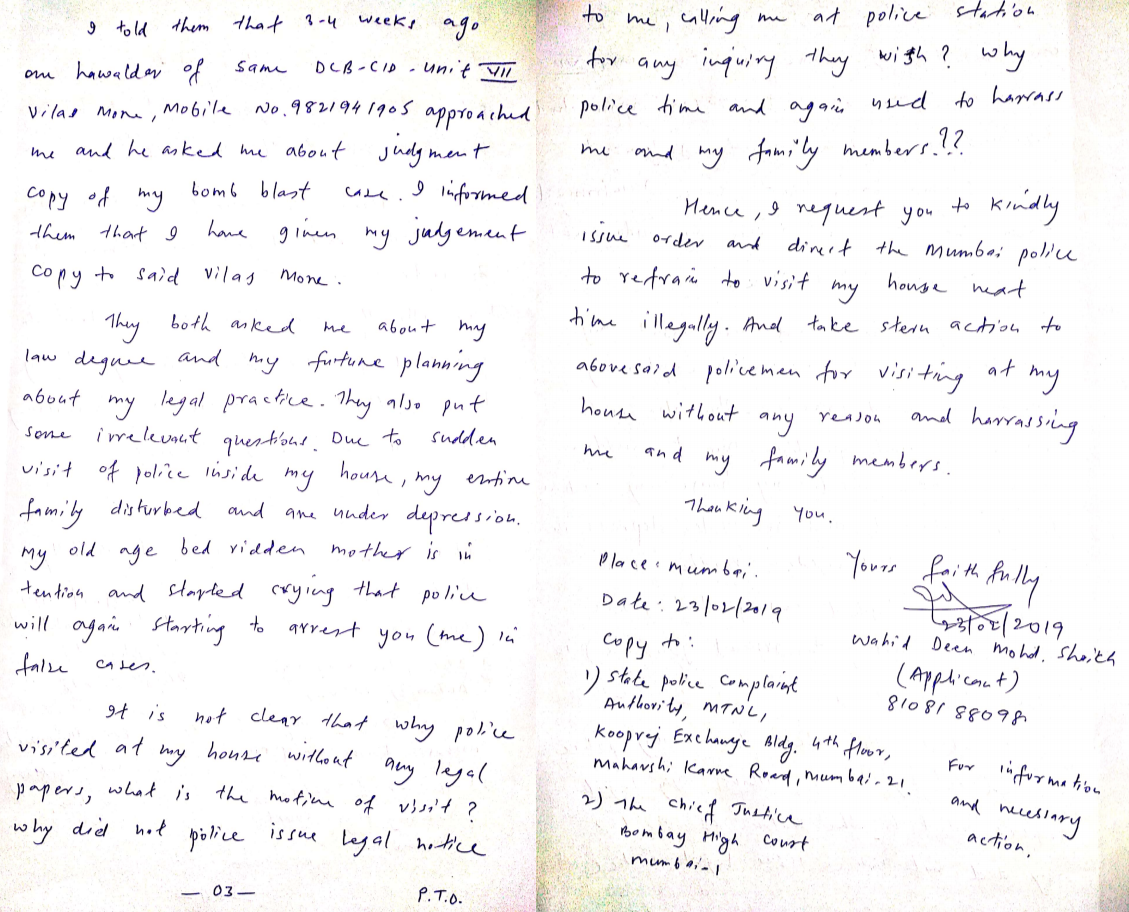 I told them that 3-4 weeks ago
one hawaldar of same DCB-CID-unit VII
Vilas More, Mobile No. 9821941905 approached
me and he asked me about judgment
copy of my bomb blast case. I informed
them that I have given my judgement
copy to said Vilas More.
They both asked me about my
law degree and my furture planning
about my legal practice. They also put
some irrelevant questions. Due to sudden
visit of police inside my house, my entire
family disturbed and are under depression.
My old age bed ridden mother is in
tention and started crying that police
will again starting to arrest you (me) in
false cases.
It is not clear that why police
visited at my house without any legal
papers, what is the motive of visit?
why did not police issue legal notice
— 03 —
P.T.O.
to me, calling me at police station
for any inquiry they wish? Why
police time and again used to harrass
me and my family members.??
Hence, I request you to kindly
issue order and direct the Mumbai police
to refrain to visit my house next
time illegally. And take stern action to
abovesaid policemen for visiting at my
house without any reason and harrassing
me and my family members.
Thanking you.
Place: mumbai.
Date: 23/02/2019
Yours faithfully
23/02/2019
Wahid Deen Mohd. Shaikh
(Applicant)
8108188098
Copy to:
1) State police Complaint
Authority, MTNL,
Cooprej Exchange Bldg. 4th floor,
Maharshi Karve Road, mumbai-21.
2) The Chief Justice
Bombay High Court
mumbai-1
For information
and necessary
action.